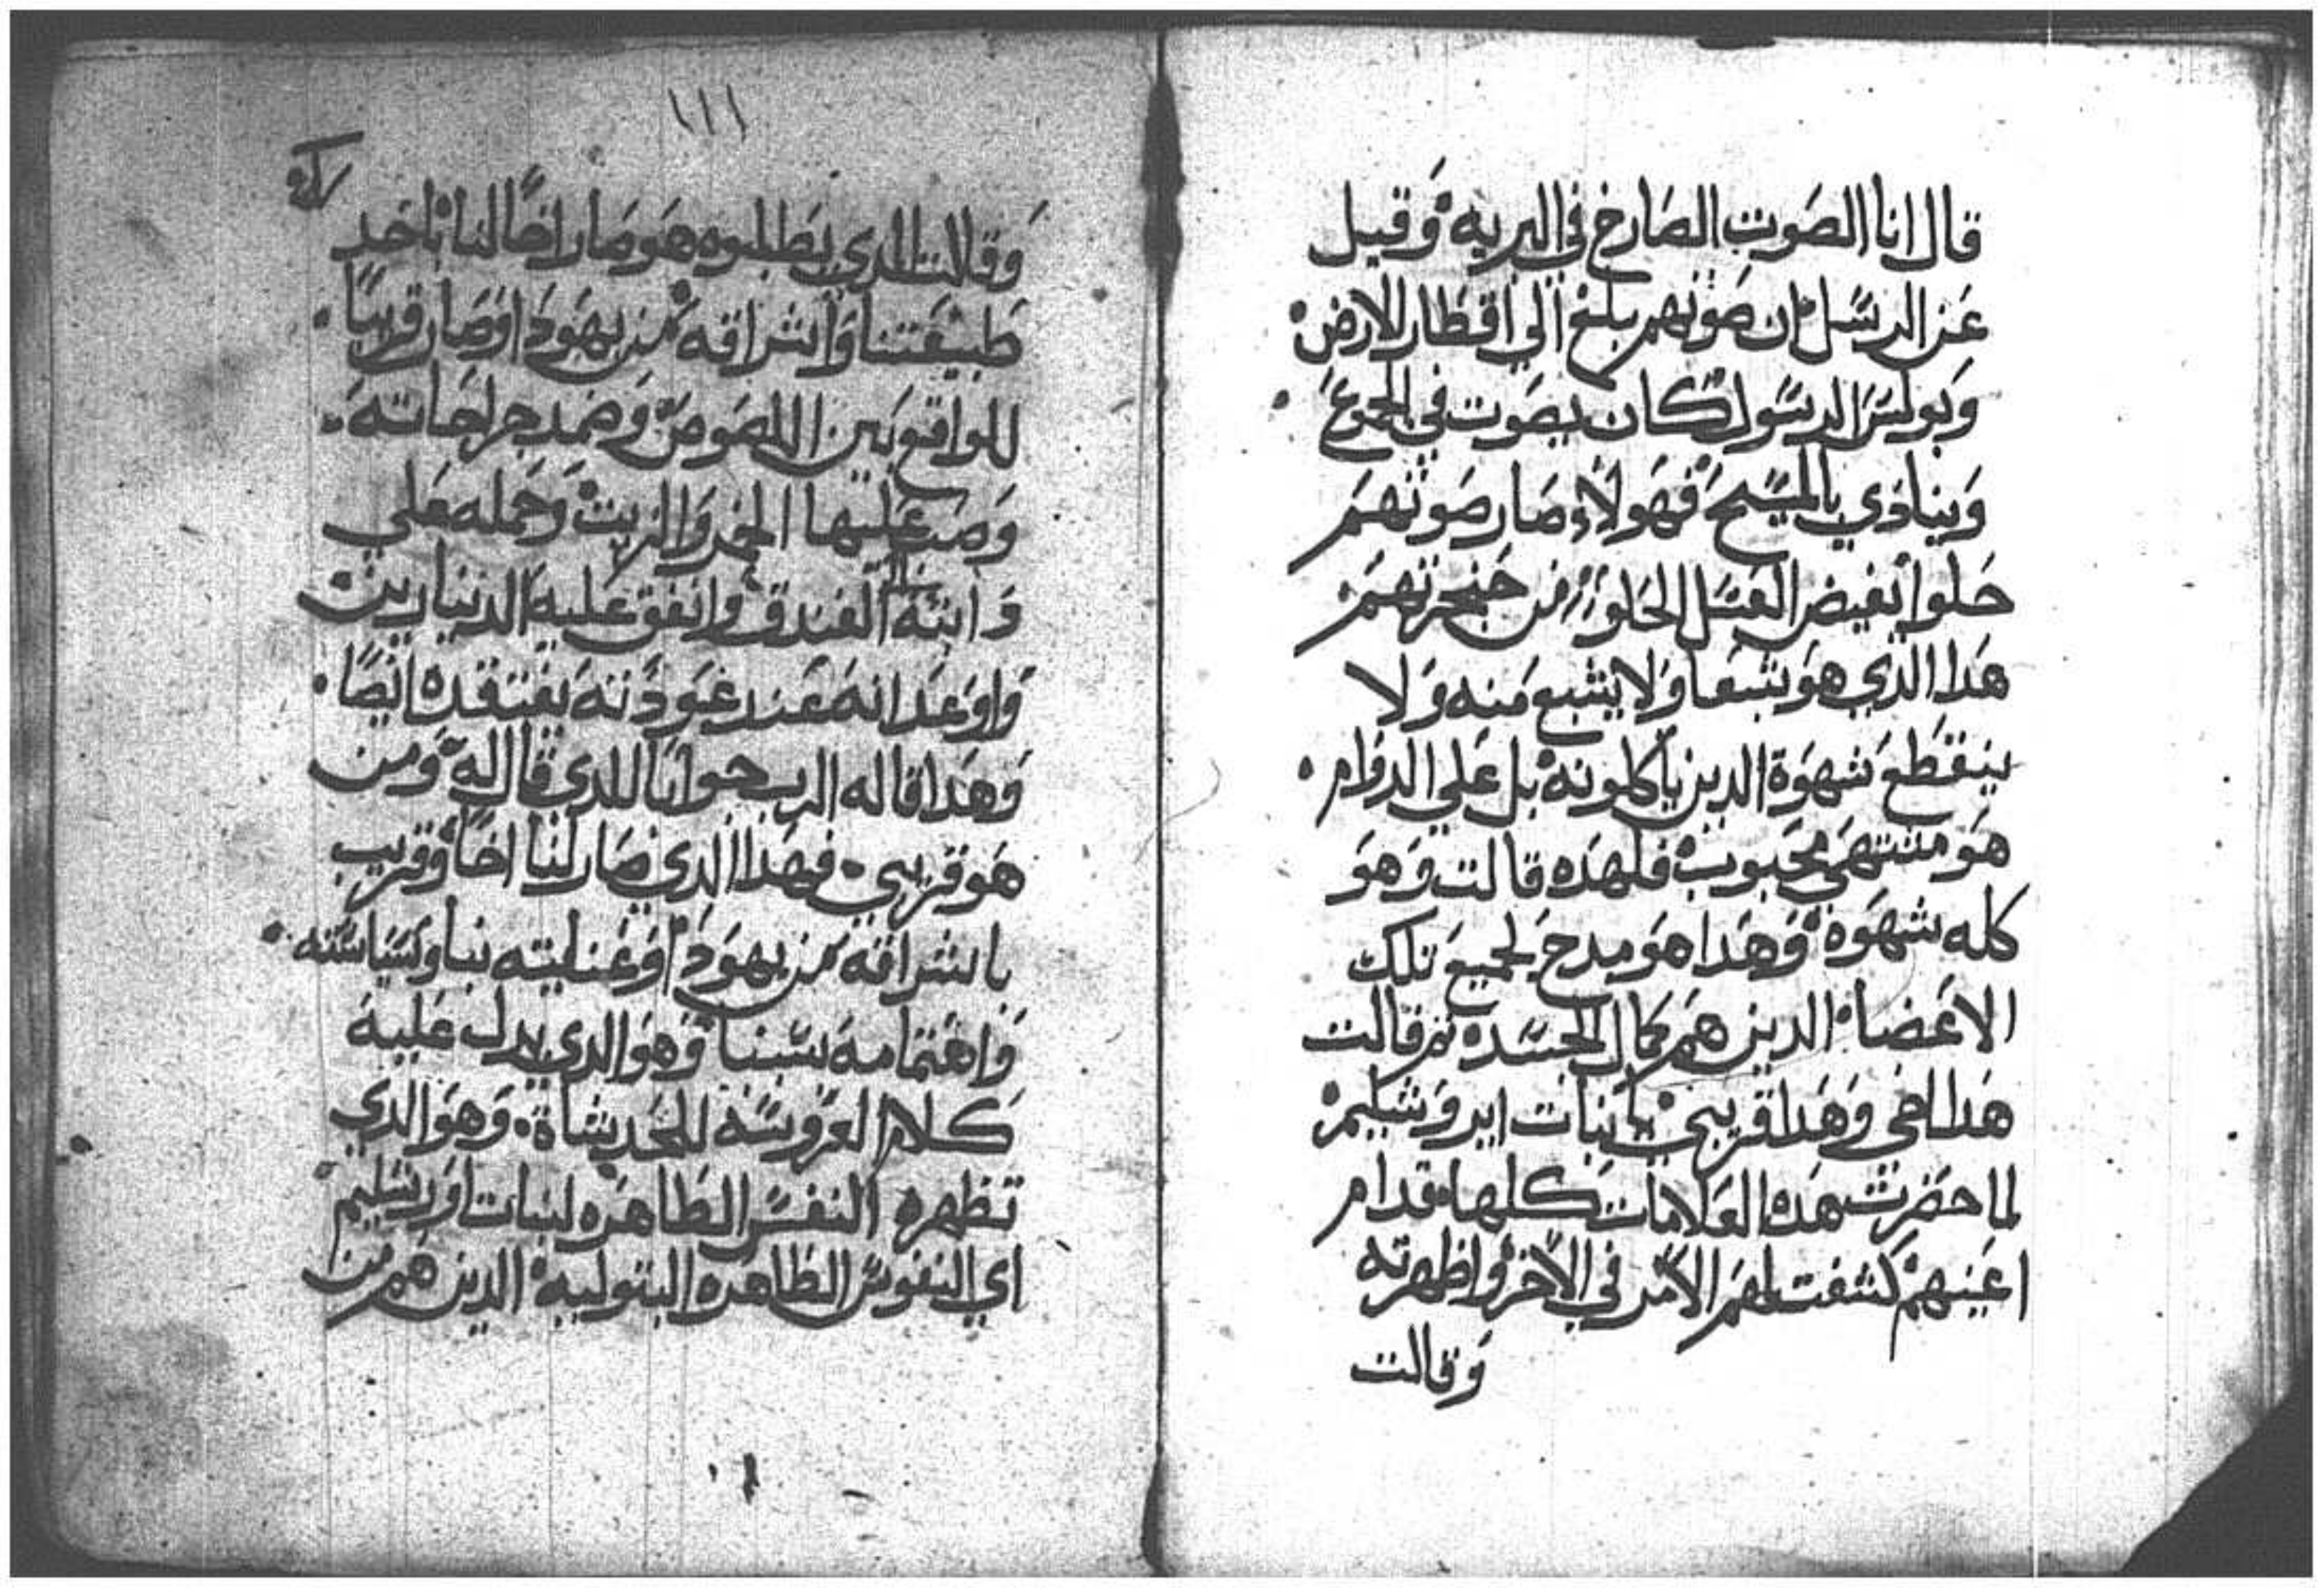 قال انا الصوت الصارخ في البريه وقيل
عن الرسل ان صوتهم بلغ الي اقطار الارض
وبولس الرسول كان يصوت في الجموع
وينادي بالمسيح فهولاء صار صوتهم
حلوا يفيض العسل الحلو من حنجرتهم
هدا الذي هو شبعا ولا يشبع منه ولا
ينقطع شهوة الدين ياكلونه بل علي الدوام
هو منتهي محبوب فلهده قالت وهو
كله شهوه وهدا هو مدح لجميع تلك
الاعضا الدين هم كمال الجسد ثم قالت
هدا اخي وهدا قريبي يا بنات ايروشليم
لما حضرت هده العلامات كلها قدام
اعينهم كشفت لهم الامر في الاخر واظهرته
وقالت
١١١
وقالت الدي يطلبوه هو صار اخا لنا باخد
طبيعتنا واشراقه من يهودا وصار قريبا
للواقع بين اللصوص وضمد جراحاته
وصب عليها الخمر والزيت وحمله علي
دابته الي الفندق وانفق عليه الدينارين
واوعد انه عند عودته يفتقده ايضا
وهدا قاله الرب جوابا للدي قال له ومن
هو قريبي فهدا الدي صار لنا اخا وقريب
باشراقه من يهودا وعنايته بنا وسياسته
واهتمامه بسببنا وهو الدي يدل عليه
كلام العروسه للحديثاة وهو الدي
تظهره النفس الطاهره لبنات اورشليم
اي النفوس الطاهره البتوليه الدين هم من